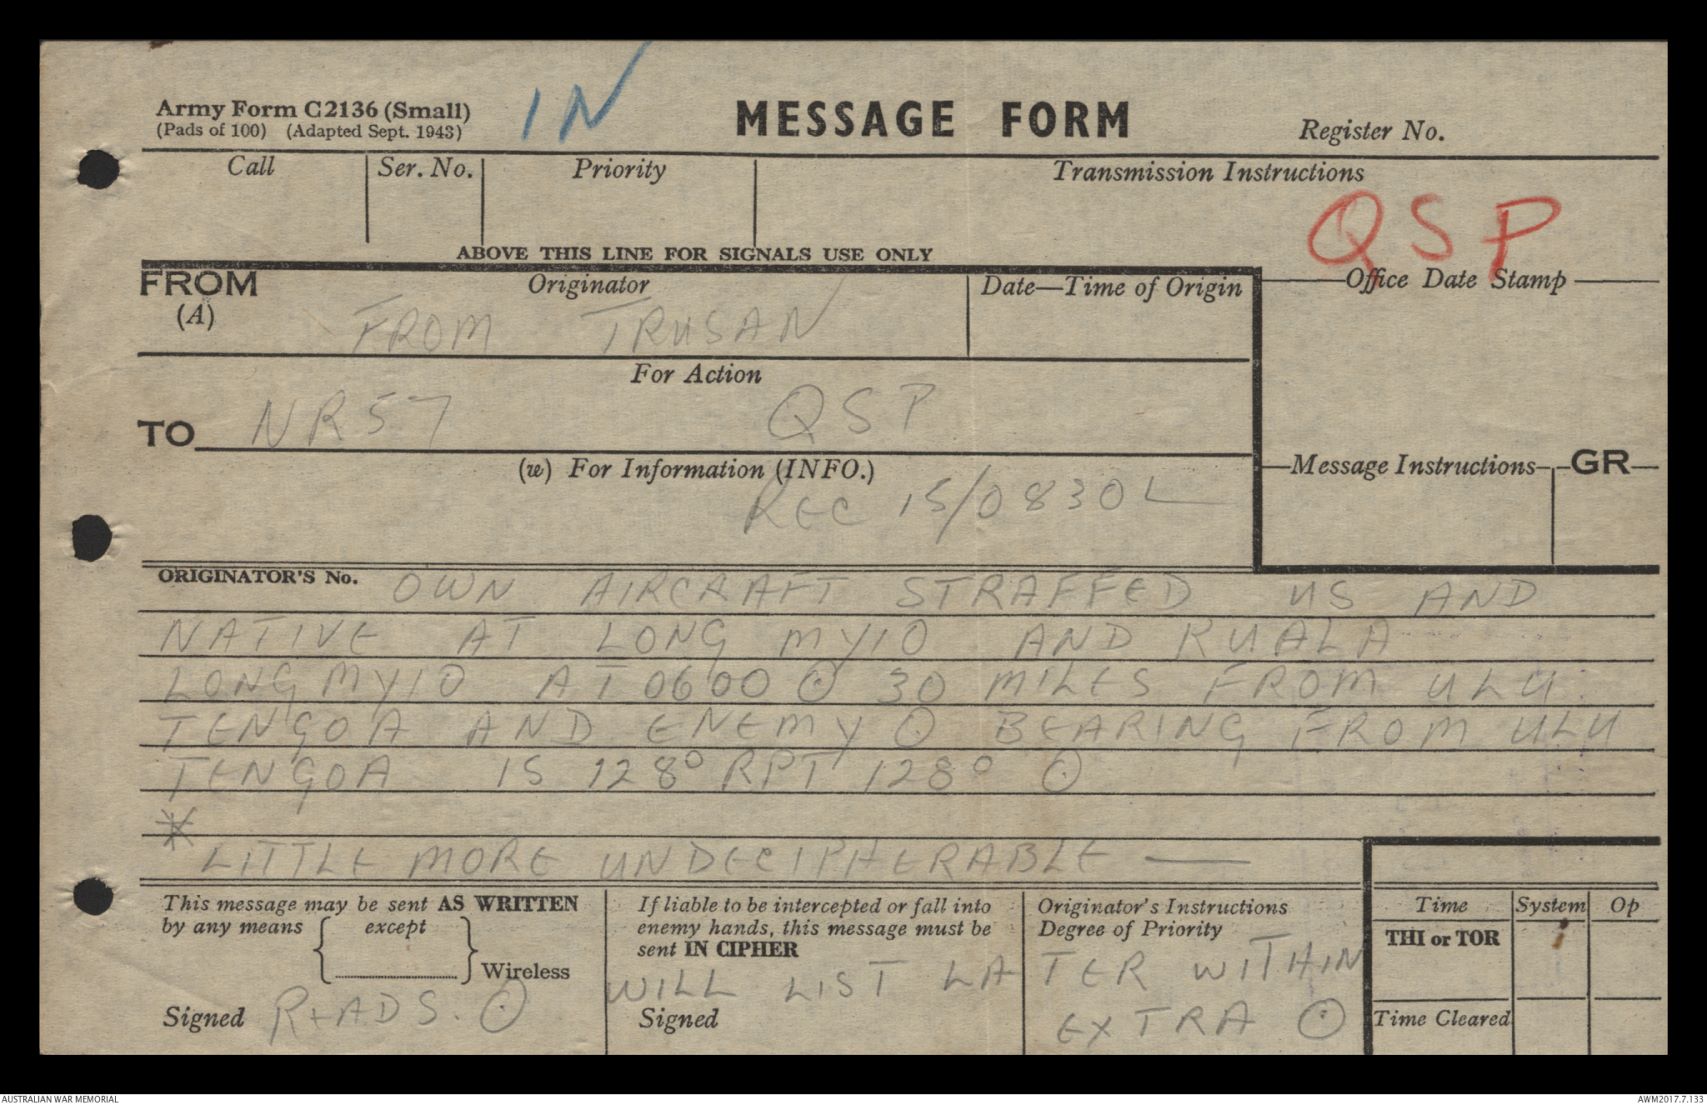 Army Form C2136 (Small)
(Pads of 100) (Adapted Sept. 1943)
IN
MESSAGE FORM
Register No.
Call Ser. No. Priority Transmission Instructions
QSP
ABOVE THIS LINE FOR SIGNALS USE ONLY
FROM (A) Originator Date—Time of Origin Office Date Stamp
FROM TRUSAN
For Action
TO NR57 QSP
(w) For Information (INFO.) Message Instructions GR
REC 15/0830 L
ORIGINATOR'S No. OWN AIRCRAFT STRAFFED US AND
NATIVE AT LONG MYIO AND KUALA
LONG MYIO AT 0600 ⊙ 30 MILES FROM ULU
TENGOA AND ENEMY ⊙ BEARING FROM ULU
TENGOA IS 128° RPT 128° ⊙
*
LITTLE MORE UNDECIPHERABLE —
This message may be sent AS WRITTEN
by any means except
Wireless
Signed READS. ⊙
If liable to be intercepted or fall into
enemy hands, this message must be
sent IN CIPHER
Originator's Instructions
Degree of Priority
WILL LIST LATER WITHIN
Signed EXTRA ⊙
Time System Op
THI or TOR
Time Cleared
AUSTRALIAN WAR MEMORIAL
AWM2017.7.133